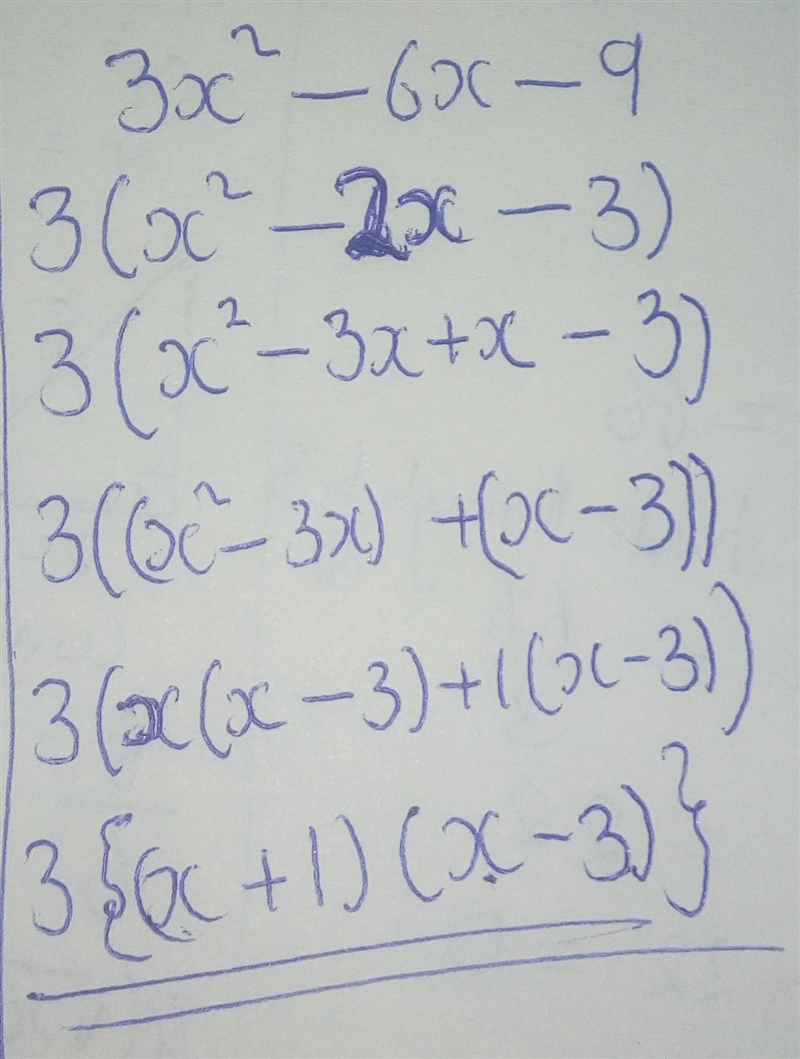 3x² - 6x - 9
3(x² - 2x - 3)
3(x² - 3x + x - 3)
3((x² - 3x) + (x - 3))
3(x(x - 3) + 1(x - 3))
3{(x + 1)(x - 3)}